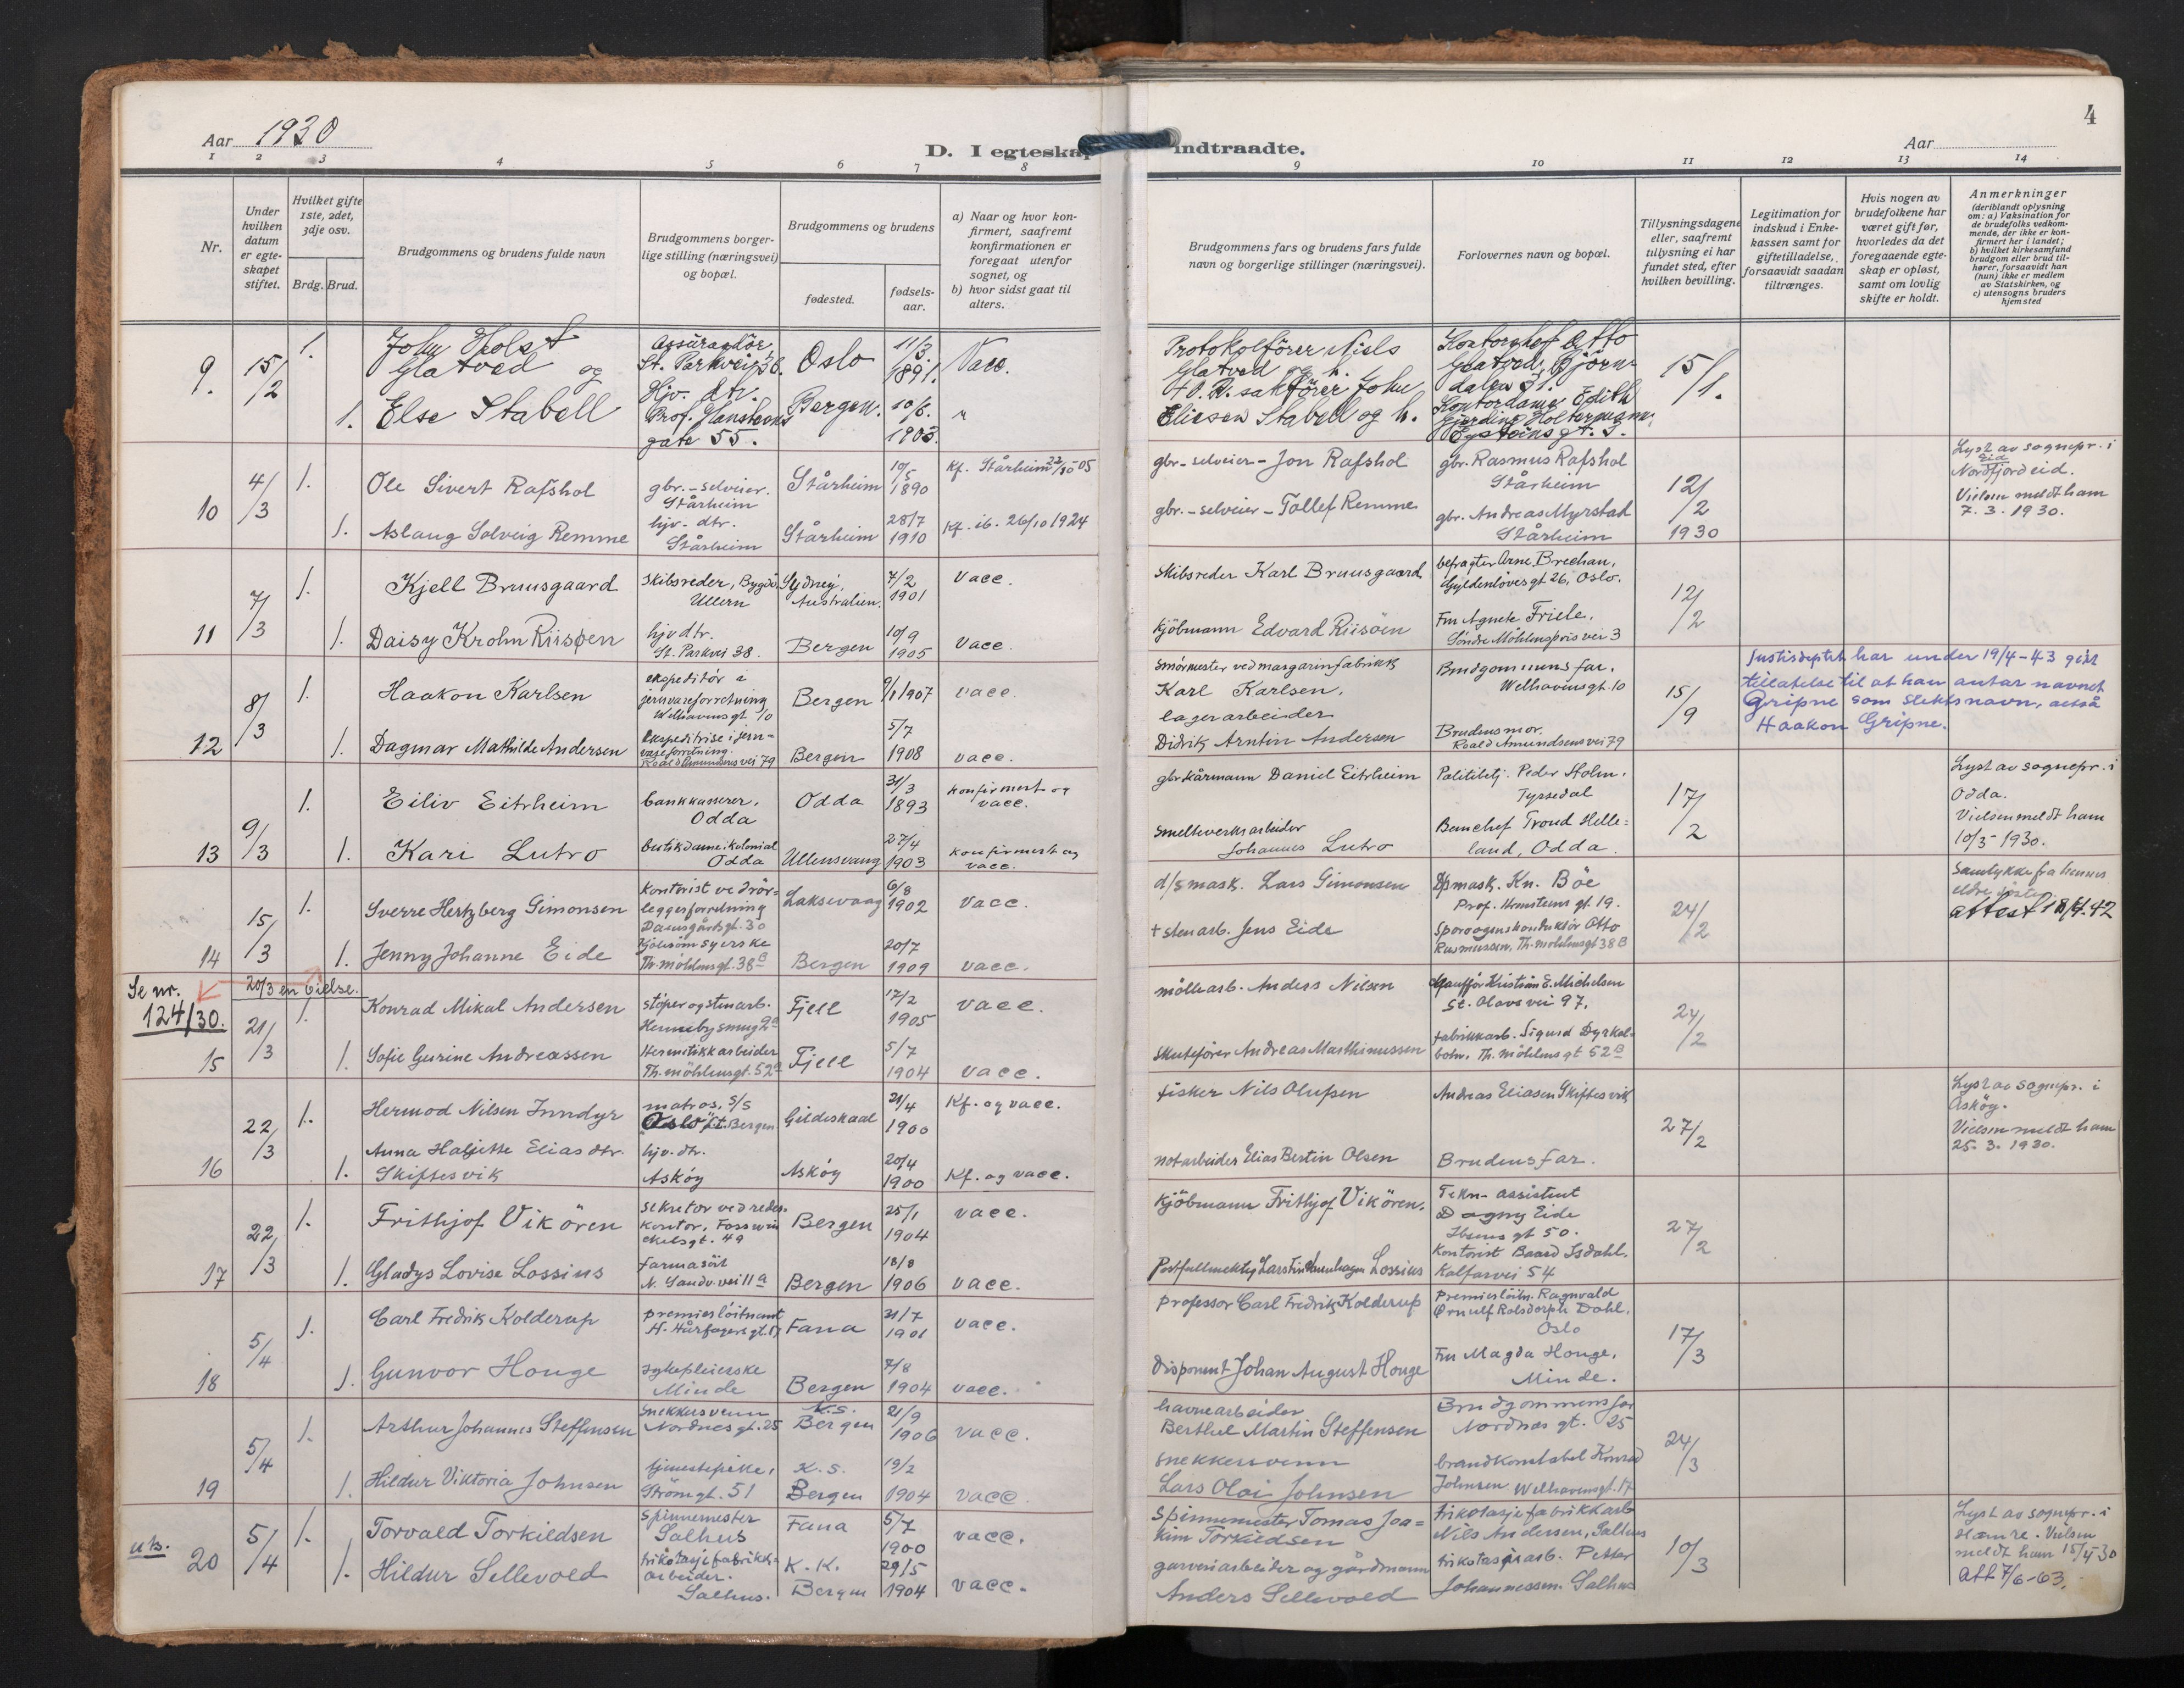 Aar 1930
D. I egteska
indtraadte.
Aar
4
1 2 3 4 5 6 7 8 9 10 11 12 13 14
Nr.
Under hvilken datum er egteskapet stiftet.
Hvilket gifte 1ste, 2det, 3dje osv.
Brdg. Brud.
Brudgommens og brudens fulde navn
Brudgommens borgerlige stilling (næringsvei) og bopæl.
Brudgommens og brudens
fødested.
fødselsaar.
a) Naar og hvor konfirmert, saafremt konfirmationen er foregaat utenfor sognet, og
b) hvor sidst gaat til alters.
Brudgommens fars og brudens fars fulde navn og borgerlige stillinger (næringsvei).
Forlovernes navn og bopæl.
Tillysningsdagene eller, saafremt tillysning ei har fundet sted, efter hvilken bevilling.
Legitimation for indskud i Enkekassen samt for giftetilladelse, forsaavidt saadan tiltrænges.
Hvis nogen av brudefolkene har været gift før, hvorledes da det foregaaende egteskap er opløst, samt om lovlig skifte er holdt.
Anmerkninger
(deriblandt oplysning om: a) Vaksination for de brudefolks vedkommende, der ikke er konfirmert her i landet; b) hvilket kirkesamfund brudgom eller brud tilhører, forsaavidt han (hun) ikke er medlem av Statskirken, og c) utensogns bruders hjemsted
9. 15/2 1. John Holst Glatved og Assurandør St. Parkvei 36. Oslo 11/3 1891. Vacc. Protokolfører Niels Glatved og h. Kontorchef Otto Glatved, Bjørndalen 31. 15/1.
1. Else Stabell Hjv. dtr. Prof. Hansteens gate 55. Bergen. 10/6. 1903. " H.R.sakfører John Eliesen Stabell og h. Kontordame Edith Gjerding Holtermann, Eysteins gt. 5.
10 4/3 1. Ole Sivert Rafshol gbr.-selveier. Stårheim Stårheim 10/5 1890 Kf. Stårheim 22/10-05 gbr-selveier-Jon Rafshol gbr. Rasmus Rafshol Stårheim 12/2 1930 Lyst av sognepr. i Eid Nordfjordeid. Vielsen meldt ham 7.3.1930.
1. Aslaug Solveig Remme hjv-dtr. Stårheim Stårheim 28/7 1910 Kf. ib. 26/10 1924 gbr.-selveier-Tollef Remme gbr. Andreas Myrstad Stårheim
11 7/3 1. Kjell Bruusgaard Skibsreder, Bygdø, Ullern Sydney, Australien. 7/2 1901 Vacc. Skibsreder Karl Bruusgaard befragter Arne Brechan, Gyldenløvesgt 26, Oslo. 12/2
1. Daisy Krohn Riisøen hjv dtr. St. Parkvei 38. Bergen 10/9 1905 Vacc. Kjöbmann Edvard Riisöen Fru Agnete Friele, Söndre Möhlenpris vei 3
12 8/3 1. Haakon Karlsen ekspeditör i jernvareforretning Welhavensgt 10 Bergen 9/1 1907 vacc. Smörmester ved margarinfabrikk Karl Karlsen. Brudgommens far. Welhavensgt. 10 15/9 Justisdeptet har under 19/4-43 gitt tillatelse til at han antar navnet Gripne som slektsnavn, altså Haakon Gripne.
1. Dagmar Mathilde Andersen Ekspeditrise i jernvareforretning. Roald Amundsens vei 79 Bergen 5/7 1908 vacc. lagerarbeider Didrik Arntin Andersen Brudens mor. Roald Amundsens vei 79
13 9/3 1. Eiliv Eitrheim bankkasserer, Odda Odda 31/3 1893 konfirmert og vacc. gbr kårmann Daniel Eitrheim Politibetj. Peder Holm. Tyssedal 17/2 Lyst av sognepr. i Odda. Vielsen meldt ham 10/3-1930.
1. Kari Lutro butikdame i kolonial Odda Ullensvang 27/4 1903 konfirmert og vacc. Smelteverksarbeider Johannes Lutro Trond Helleland, Odda.
14 15/3 1. Sverre Hertzberg Simonsen Kontorist ved rörleggerforretning Damsgårdsgt. 30 Laksevaag 6/8 1902 Vacc. d/s mask. Lars Simonsen D/s mask. Kn. Böe Prof. Hansteens gt 19. 24/2 Samtykke fra hennes eldre attest 18/4.42
1. Jenny Johanne Eide Kjolesömsyerske Th. möhlensgt. 38B Bergen 20/7 1909 vacc. † stenarb. Jens Eide Sporvognskonduktör Otto Rasmussen, Th. möhlensgt 38B
Se nr. 124/30.
20/3 en vielse.
15 21/3 1. Konrad Mikal Andersen stöper og stenarb. Fjell 17/2 1905 vacc. möllearb. Anders Nilsen Chaufför Kristian E. Michelsen St. Olavs vei 97. 24/2
1. Sofie Gurine Andreassen Hermetikkarbeider Th. möhlensgt. 52a Fjell 5/7 1904 vacc. Skutefører Andreas Marthinussen fabrikkarb. Sigurd Dyrkolbotn, Th. möhlens gt 52a
16 22/3 1. Hermod Nilsen Inndyr matros, S/S Oslo Bergen Gildeskaal 21/4 1900 Kf. og vacc. fisker Nils Olufsen Andreas Eliasen Skiftesvik 27/2 Lyst av sognepr. i Asköy. Vielsen meldt ham 25.3.1930.
1. Anna Eliasdtr. Skiftesvik hjv. dtr. Asköy Asköy 20/4 1900 Kf. og vacc. Notarbeider Elias Bertin Olsen Brudens far.
17 22/3 1. Frithjof Vikören Sekretær ved rederkontor, Bergen 25/1 1904 vacc. Kjöbmann Frithjof Vikören. Tekn-assistent Dagny Eide Ibsens gt 50. 27/2
1. Gladys Lovise Lossius Farmasöit N. Sandv. vei 11a Bergen 18/8 1906 vacc. Postfullmektig Lossius Kontorist Baard Isdahl, Kalfarvei 54
18 5/4 1. Carl Fredrik Kolderup premierlöitnant H. Hårfagers gt. 17 Fana 31/7 1901 vacc. Professor Carl Fredrik Kolderup Premierlöitn. Ragnvald Ørnulf Rolsdorph Dahl. Oslo 17/3
1. Gunvor Houge sykepleierske Minde Bergen 7/8 1904 vacc. Disponent Johan August Houge Fru Magda Houge, Minde.
19 5/4 1. Arthur Johannes Steffensen Snekkersvenn Nordnesgt. 25 K.S. Bergen 21/9 1906 vacc. havnearbeider Berthel Martin Steffensen Brudgommens far Nordnes gt. 25 24/3
1. Hildur Viktoria Johnsen tjenestepike, Strömgt. 51 K.S. Bergen 19/2 1904 vacc. snekkersvenn Lars Olai Johnsen brandkonstabel Konrad Johnsen Welhavensgt. 17
u.b. 20 5/4 1. Torvald Torkildsen Spinnemester Salhus Fana 5/7 1900 vacc. Spinnemester Tomas Joakim Torkildsen trikotasjefabrikkarb Nils Andersen, Salhus 10/3 Lyst av sognepr. i Hamre. Vielsen meldt ham 15/4 30 Att 7/6-63.
1. Hildur Sellevold trikotasjefabrikkarbeider. Salhus. K.K. Bergen 29/5 1904 vacc. garveriarbeider og gårdmann Anders Sellevold trikotasjearb. Petter Johannessen. Salhus